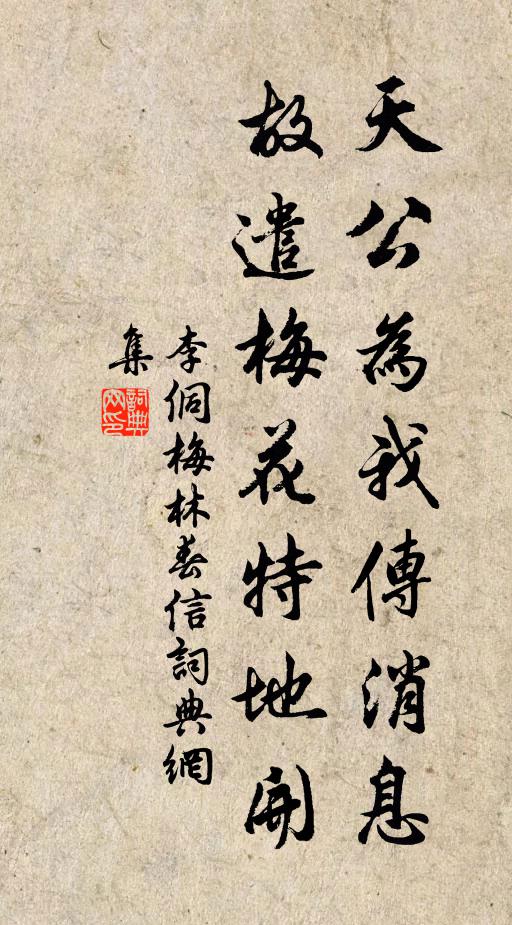 天公為我傳消息
故遣梅花特地開
李侗梅林春信詞典網
集
詞典
网印